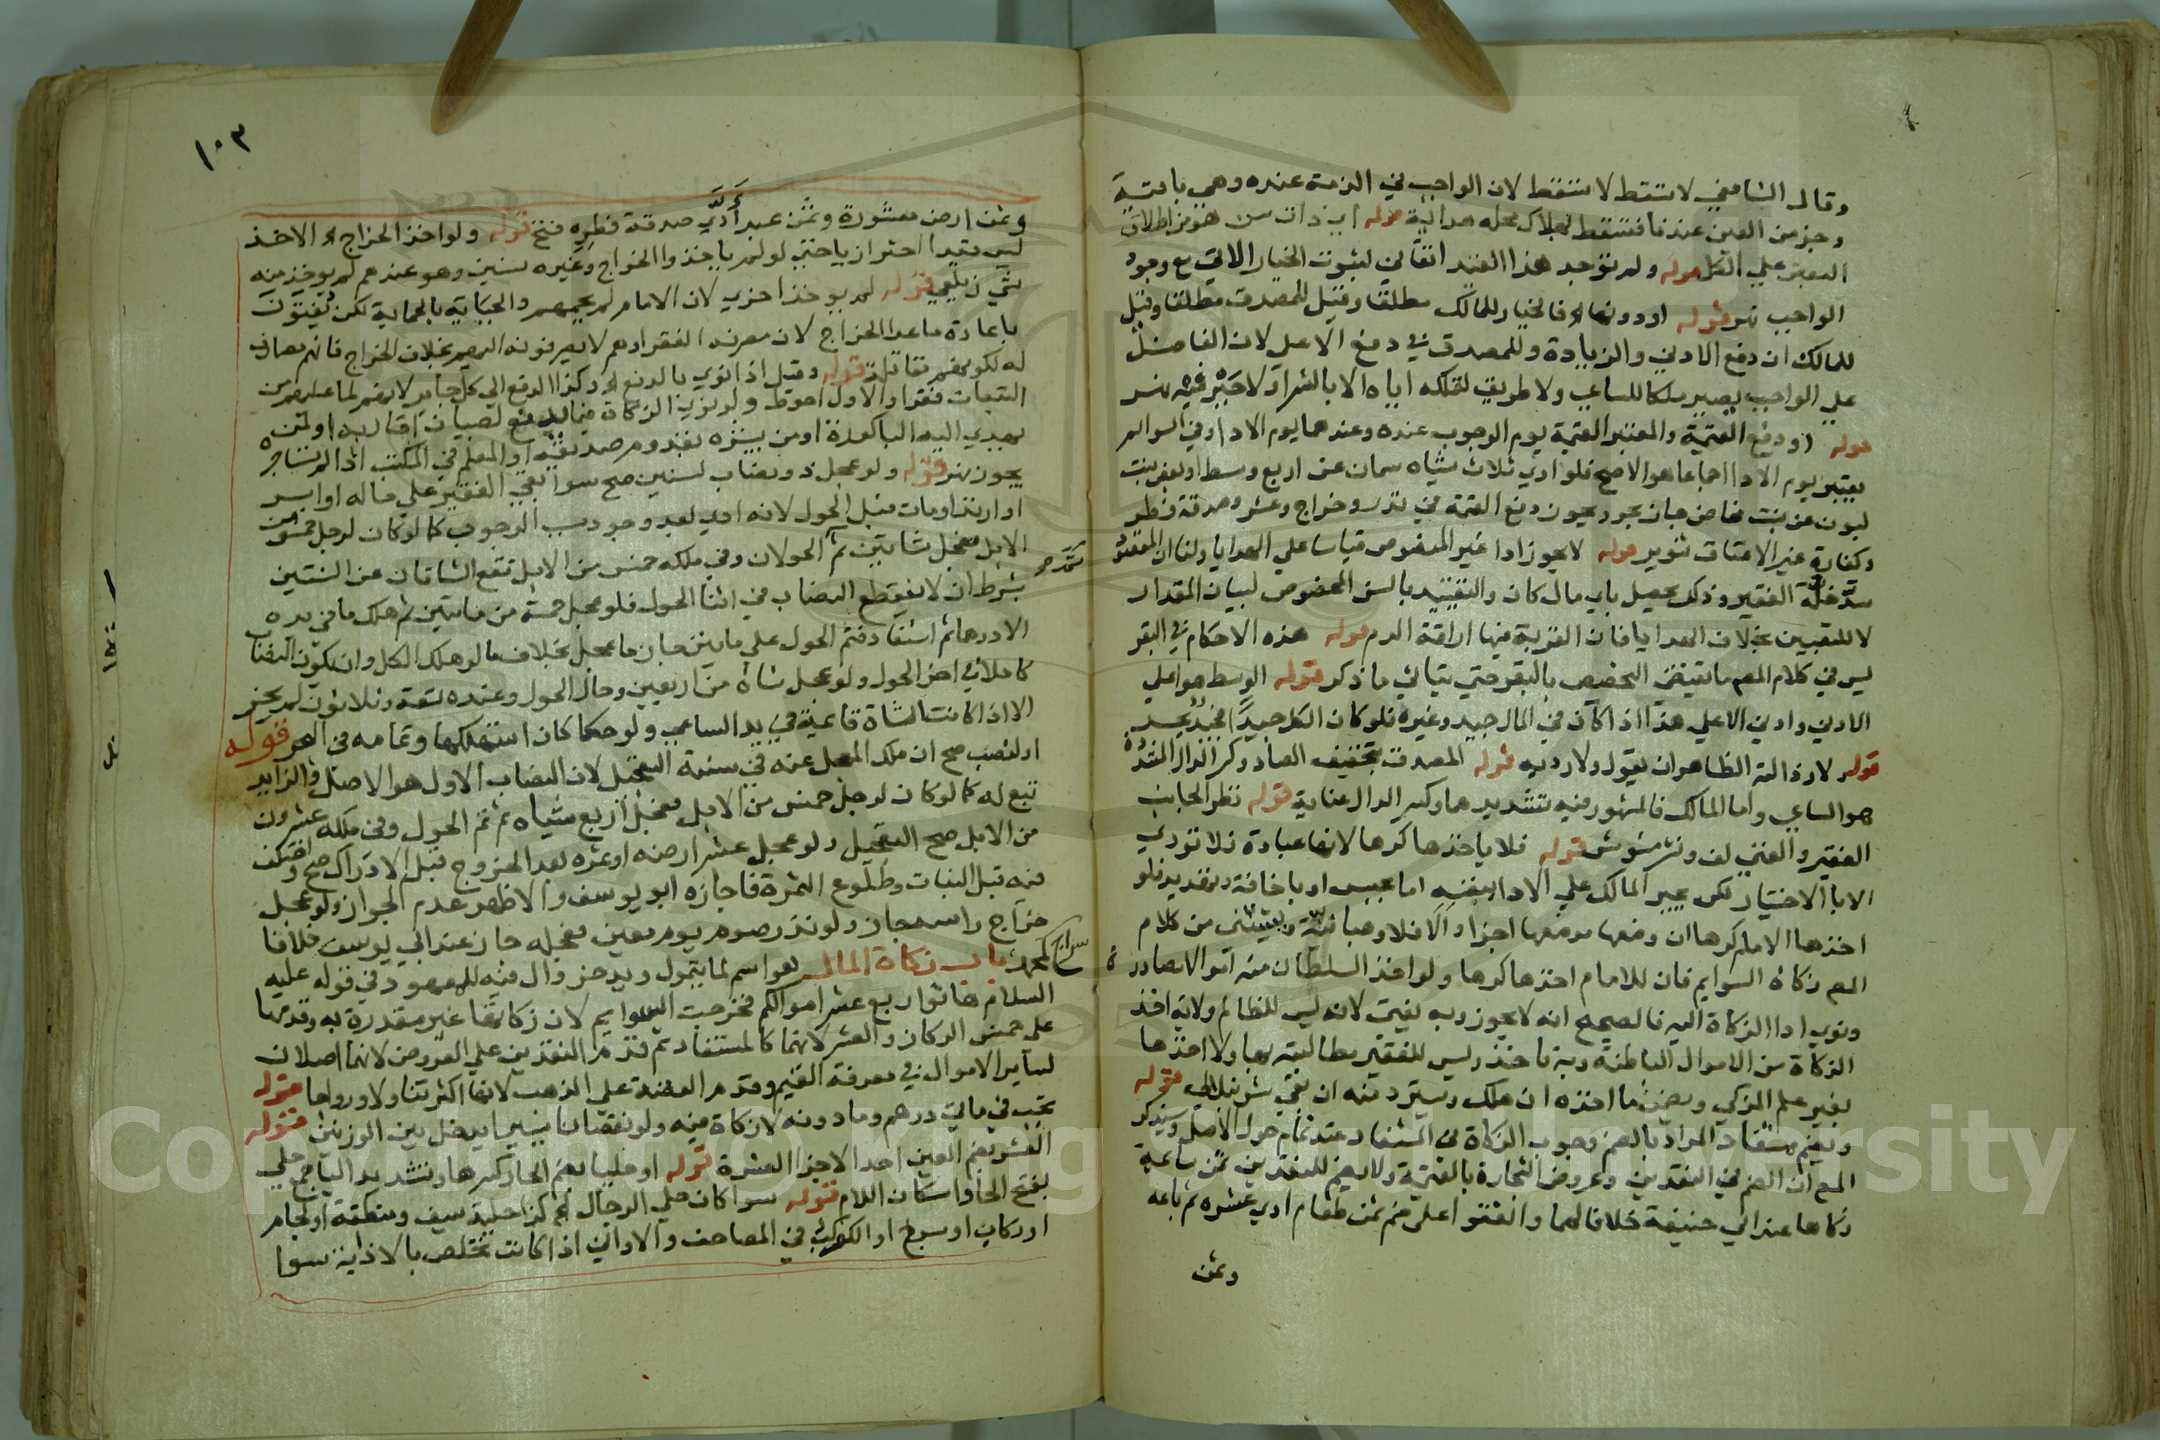 وقال الشافعي لا تسقط لان الواجب في الذمة عنده وهي باقية
وجزء من العين عندنا فتسقط بهلاك محله هداية قوله اي ذات سن هو من اطلاق
البعض علي الكل قوله ولم توجد هذا القيد اتفاقي لثبوت الخيار الاتي مع وجود
الواجب نهر قوله او دونها الخ فالخيار للمالك مطلقا وقيل للمصدق مطلقا وقيل
للمالك ان دفع الادني والزيادة وللمصدق في دفع الاعلي لان الفاضل
علي الواجب يصير ملكا للساعي ولا طريق لتملكه اياه الا بالشرا ولا جبر فيه نهر
قوله او دفع القيمة والمعتبر القيمة يوم الوجوب عنده وعندهما يوم الادا وفي السوايم
يعتبر يوم الادا اجماعا هو الاصح فلو ادي ثلاث شياه سمان عن اربع وسط او بعض بنت
لبون عن بنت مخاض جاز بحر ويجوز دفع القيمة في نذر وخراج وعشر وصدقة فطر
وكفارة غير الاعتاق تنوير قوله لا يجوز ادا غير المنصوص قياسا علي الهدايا ولنا ان المقصود
سد خلة الفقير وذلك يحصل باي مال كان والتقييد بالسن المخصوص لبيان المقدار
لا للتعيين بخلاف الهدايا فان القربة فيها اراقة الدم قوله هذه الاحكام في البقر
ليس في كلام المص ما يقتضي التخصيص بالبقر حتي يتاتي ما ذكر قوله الوسط هو اعلي
الادني وادني الاعلي هذا اذا كان في المال جيد وغيره فلو كان الكل جيدا فجيد بحر
قوله لا رذالته الظاهر ان يقول ولا رديه قوله المصدق بتخفيف الصاد وكسر الدال المشددة
هو الساعي واما المالك فالمشهور فيه تشديدها وكسر الدال عناية قوله نظر الجانب
الفقير والغني لف ونشر مشوش قوله فلا ياخذها كرها لانها عبادة فلا تودي
الا بالاختيار لكن يجبر المالك علي الادا بنفسه اما بحبس او باخافة وتهديد فلو
اخذها الامام كرها ان وضعها موضعها اجزا والا فلا وهبانية ويستثنى من كلام
المص زكاة السوايم فان للامام اخذها كرها ولو اخذ السلطان منه اموالا مصادرة
ونوي ادا الزكاة اليه فالصحيح انه لا يجوز وبه يفتى لانه ليس للظالم ولاية اخذ
الزكاة من الاموال الباطنة وبه ناخذ وليس للفقير مطالبته بها ولا اخذها
بغير علم المزكي ويضمن ما اخذه ان هلك ويسترد منه ان بقي شرنبلالي قوله
ويضم مستفاد المراد بالضم وجوب الزكاة في المستفاد عند تمام حول الاصل وسيذكر
المص ان الضم في النقدين وعروض التجارة بالقيمة ولا يضم للنقدين ثمن سائمة
زكاها عند ابي حنيفة خلافا لهما واتفقوا على ضم ثمن طعام ادي عشره ثم باعه
وثمن
١٠٣
وثمن ارض معشورة وثمن عبد ادي صدقة فطره فتح قوله ولو اخذ الخراج الخ الاخذ
ليس قيدا احترازيا حتي لو لم ياخذوا الخراج وغيره سنين وهو عندهم لم يوخذ منه
شي زيلعي قوله لم يوخذ اخري لان الامام لم يحمهم والجباية بالحماية لكن يفتون
باعادة ما عدا الخراج لان مصرفه الفقرا وهم لا يصرفونه اليهم بخلاف الخراج فانهم مصارف
له لكونهم مقاتلة قوله وقيل اذا نوي بالدفع الخ وكذا الدفع الي كل جاير لانهم لما عليهم من
التبعات فقرا والاول احوط ولو نوي الزكاة فيما يدفع لصبيان اقاربه او لمن
يهدي اليه الباكورة او من يبشره بقدوم صديقه او المعلم في المكتب اذا لم يستاجره
يجوز نهر قوله ولو عجل ذو نصاب لسنين صح سوا بقي الفقير علي حاله او ايسر
او ارتد او مات قبل الحول لانه ادي بعد وجود سبب الوجوب كما لو كان لرجل خمس من
الابل فعجل شاتين ثم الحولان وفي ملكه خمس من الابل تقع الشاتان عن السنتين
بشرط ان لا ينقطع النصاب في اثنا الحول فلو عجل خمسة من مايتين ثم هلك ما في يده
الا درهما ثم استفاد فتم الحول علي مايتين جاز ما عجل بخلاف ما لو هلك الكل وان يكون النصاب
كاملا في اخر الحول ولو عجل شاة من اربعين وحال الحول وعنده تسعة وثلاثون لم يجز
الا اذا كانت الشاة قايمة في يد الساعي ولو حكما كان استهلكها وتمامه في النهر قوله
او لنصب صح ان ملك المعجل عنه في سنة التعجيل لان النصاب الاول هو الاصل والزايد
تبع له كما لو كان لرجل خمس من الابل فعجل اربع شياه ثم تم الحول وفي ملكه عشرون
من الابل صح التعجيل ولو عجل عشر ارضه او ثمره بعد الخروج قبل الادراك صح واختلف
فيه قبل النبات وطلوع الثمرة فاجازه ابو يوسف والاظهر عدم الجواز ولو عجل
خراج راسه جاز ولو نذر صوم يوم معين فعجله جاز عند ابي يوسف خلافا
لمحمد باب زكاة المال هو اسم لما يتمول ويدخر وال فيه للمعهود في قوله عليه
السلام هاتوا ربع عشر اموالكم فخرجت السوايم لان زكاتها غير مقدرة به وقدمها
على خمس الركاز والعشر لانهما كالمستفاد ثم قدم النقدين علي العروض لانهما اصلان
لساير الاموال في معرفة القيم وقدم الفضة علي الذهب لانها اكثر تناولا ورواجا قوله
تجب في مايتي درهم وما دونه لا زكاة فيه ولو نقصانا يسيرا يدخل بين الوزنين قوله
العشر بضم العين احد الاجزا العشرة قوله او حليا بضم الحا وكسرها وتشديد اليا جمع حلي
بفتح الحا واسكان اللام قوله سوا كان حلي الرجال الخ كذا حلية سيف ومنطقة او لجام
او ركاب او سرج او الكوكب في المصاحف والاواني اذا كانت تخلص بالاذابة سوا